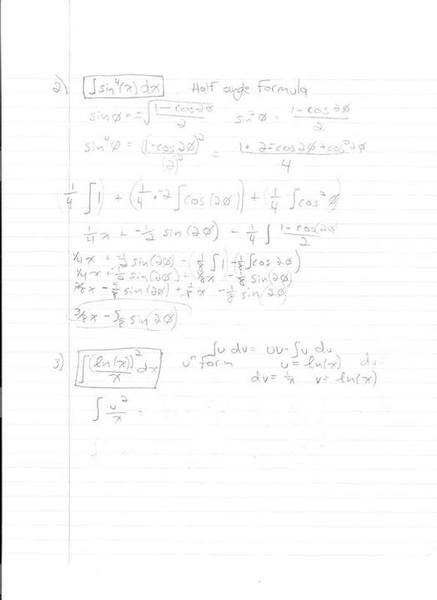 2) ∫sin⁴(x)dx Half angle Formula
sin ø = ± √((1-cos2ø)/2) sin²ø = (1-cos2ø)/2
sin⁴ø = (1-cos2ø)²/(2)² = (1+2-cos2ø+cos²2ø)/4
(1/4 ∫1) + (1/4·-2∫cos(2ø)) + (1/4 ∫cos²ø)
1/4x + -1/2 sin(2ø) - 1/4 ∫ (1-cos(2ø))/2
1/4x + -1/2 sin(2ø) - (1/8∫1) (-1/8∫cos2ø)
1/4x + -1/2 sin(2ø) + 1/8x - 1/8 sin(2ø)
sin(2ø) + 1/8x - 1/8 sin(2ø)
3/8x - 5/8 sin(2ø)
3) ∫(ln(x))²/x dx uⁿ form ∫u dv = uv-∫v du
u = ln(x)
dv = 1/x v = ln(x)
∫u²/x =